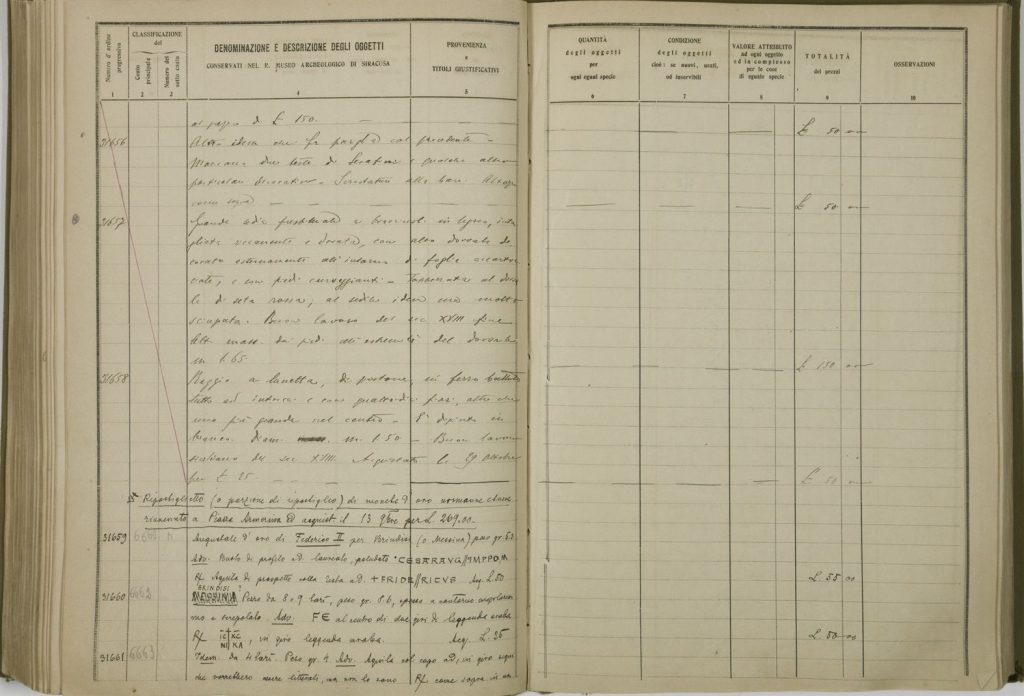 Numero d'ordine progressivo
CLASSIFICAZIONE
del
Conto principale
Numero del sotto conto
DENOMINAZIONE E DESCRIZIONE DEGLI OGGETTI
CONSERVATI NEL R. MUSEO ARCHEOLOGICO DI SIRACUSA
PROVENIENZA
e
TITOLI GIUSTIFICATIVI
QUANTITÀ
degli oggetti
per
ogni egual specie
CONDIZIONE
degli oggetti
cioè: se nuovi, usati,
od inservibili
VALORE ATTRIBUITO
ad ogni oggetto
ed in complesso
per le cose
di eguale specie
TOTALITÀ
dei pezzi
OSSERVAZIONI
1 2 3 4 5 6 7 8 9 10
al prezzo di £ 150. — £ 50 00
31656 Altro idem che fa col precedente -
due teste di Serafini e qualche altro
particolare decorativo alla base.
come sopra — £ 50 00
31657 Grande sedia a braccioli in legno, inta
gliata riccamente e dorata, con alto dorsale de
corato esternamente all'intorno di foglie accartoc
ciate, e con piedi curveggianti - Tappezzata al dorsa
le di seta rossa, al sedile idem ma molto
sciupata. Buon lavoro del sec XVIII fine
Alt. mass. dai piedi all'estremità del dorsale
m. 1.65. — £ 150 00
31658 Raggio a lunetta, di portone, in ferro battuto
tutto ad intarsi e con quattordici fiori, oltre che
uno più grande nel centro - È dipinto in
bianco. Diam. m. 1.50 - Buon lavoro
siciliano del sec XVIII. Acquistato il 29 Ottobre
per £ 25. — £ 50 00
Ripostiglietto (o porzione di ripostiglio) di monete d'oro normanne
rinvenuto a Piazza Armerina ed acquist. il 13 9bre per L. 269.00.
31659 Augustale d'oro di Federico II per Brindisi (o Messina) peso gr. 5.2
Adv. Busto di profilo a d. laureato, paludato * CESARAVG//IMPROM
R/ Aquila di prospetto colla testa a d. + FRIDE//RICVS Acq. L. 50 L. 55 00
BRINDISI ?
31660 6662 MESSINA Pezzo da 8 o 9 tarì, peso gr. 8.6, spesso a contorno irregolaris
simo e screpolato. Adv. FE al centro di due giri di leggenda araba
R/ IC XC NI KA, in giro leggenda araba. Acq. L. 35 L. 50 00
31661 6663 Idem. da 4 tarì. Peso gr. 4 Adv. Aquila col capo a d., in giro segni
che vorrebbero essere litterali, ma non lo sono R/ come sopra in